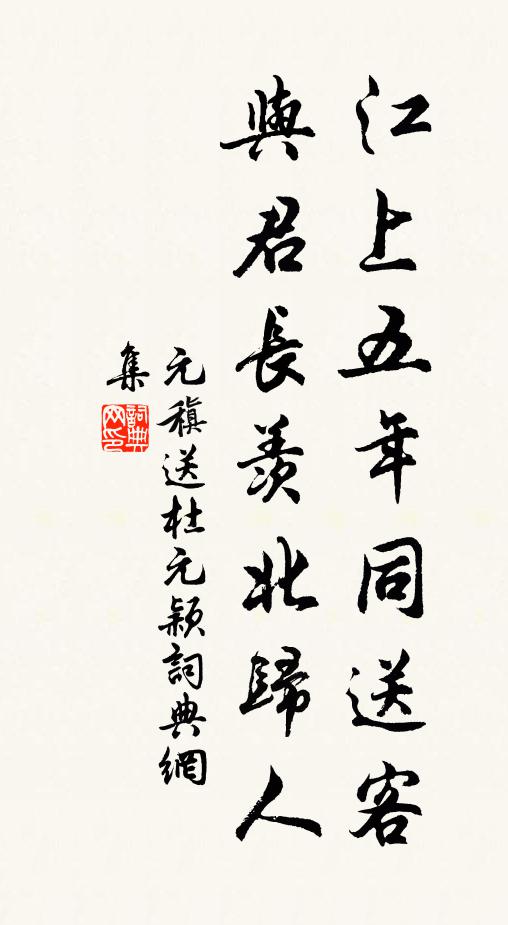 江上五年同送客
與君長羨北歸人
元稹送杜元穎詞典網
集
詞典網印